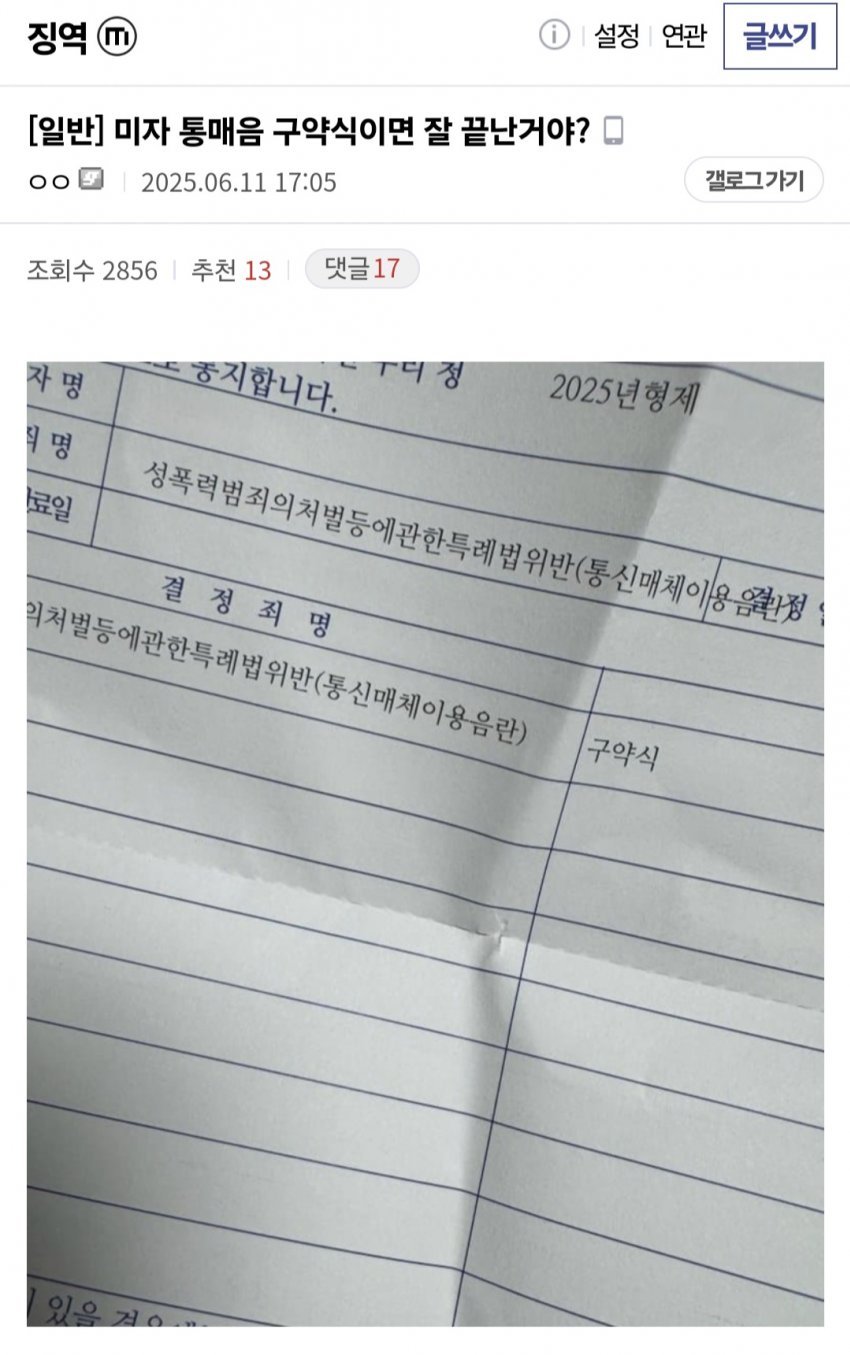 징역 ⓜ
설정 연관 글쓰기
[일반] 미자 통매음 구약식이면 잘 끝난거야?
ㅇㅇ 2025.06.11 17:05
갤로그 가기
조회수 2856 추천 13 댓글 17
통지합니다. 우리 정
2025년형제
자 명
죄 명
성폭력범죄의처벌등에관한특례법위반(통신매체이용음란)
료일
결 정 죄 명
결 정
의처벌등에관한특례법위반(통신매체이용음란)
구약식
있을 경우에